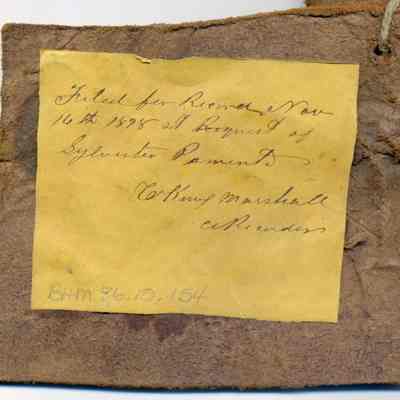 Filed for Record Nov
16th 1898 at Request of
Sylvester
Marshall
Recorder
BHM 96.15.154